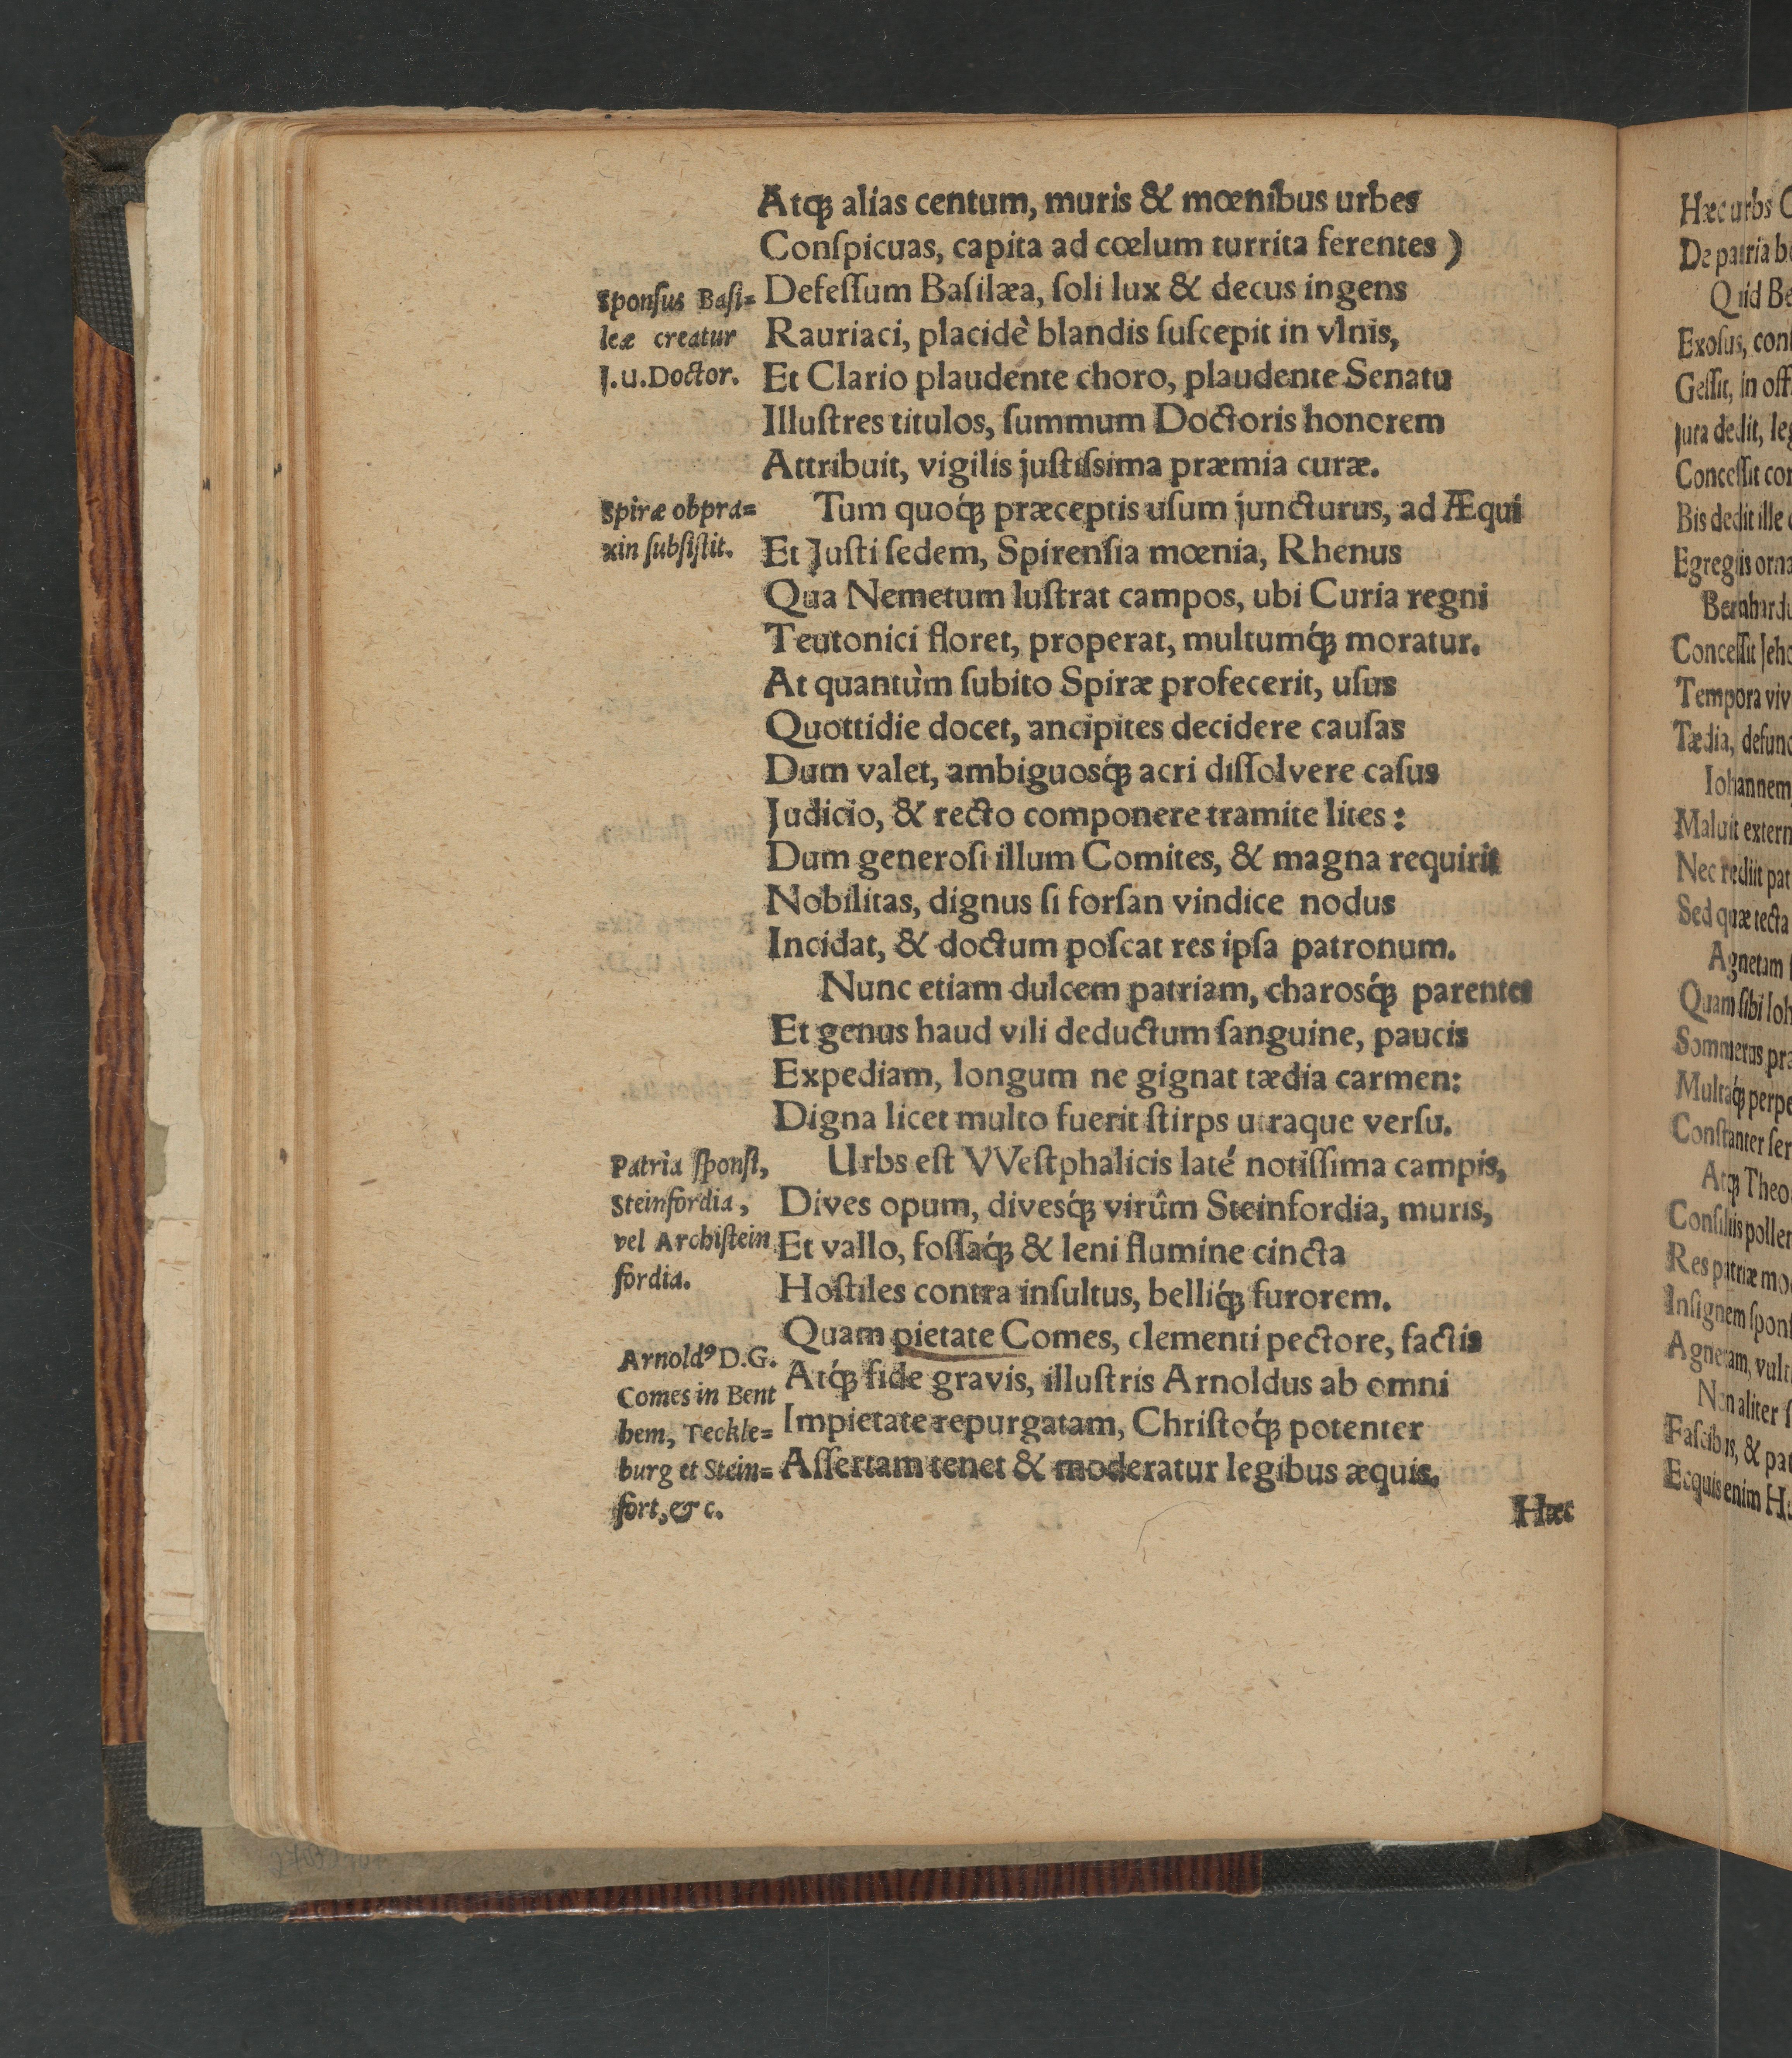 Atqꝫ alias centum, muris & mœnibus urbes
Conſpicuas, capita ad cœlum turrita ferentes )
Defeſſum Baſilæa, ſoli lux & decus ingens
Rauriaci, placidè blandis ſuſcepit in vlnis,
Et Clario plaudente choro, plaudente Senatu
Illuſtres titulos, ſummum Doctoris honorem
Attribuit, vigilis juſtiſsima præmia curæ.
Tum quoq́ꝫ præceptis uſum juncturus, ad Æqui
Et Juſti ſedem, Spirenſia mœnia, Rhenus
Qua Nemetum luſtrat campos, ubi Curia regni
Teutonici floret, properat, multumq́ꝫ moratur.
At quantùm ſubito Spiræ profecerit, uſus
Quottidie docet, ancipites decidere cauſas
Dum valet, ambiguosq́ꝫ acri diſſolvere caſus
Judicio, & recto componere tramite lites:
Dum generoſi illum Comites, & magna requirit
Nobilitas, dignus ſi forſan vindice nodus
Incidat, & doctum poſcat res ipſa patronum.
Nunc etiam dulcem patriam, charosq́ꝫ parentes
Et genus haud vili deductum ſanguine, paucis
Expediam, longum ne gignat tædia carmen:
Digna licet multo fuerit ſtirps utraque verſu.
Urbs eſt VVeſtphalicis laté notiſſima campis,
Dives opum, divesq́ꝫ virûm Steinfordia, muris,
Et vallo, foſſaq́ꝫ & leni flumine cincta
Hoſtiles contra inſultus, belliq́ꝫ furorem.
Quam pietate Comes, clementi pectore, factis
Atq́ꝫ fide gravis, illuſtris Arnoldus ab omni
Impietate repurgatam, Chriſtoq́ꝫ potenter
Aſſertam tenet & moderatur legibus æquis.
Hæc
Sponſus Baſi=
leæ creatur
J.u.Doctor.
Spiræ ob pra=
xin ſubſiſtit.
Patria ſponſi,
Steinfordia,
vel Archiſtein
fordia.
Arnoldꝰ D.G.
Comes in Bent
hem, Teckle=
burg et Stein=
fort, &c.
Hæc urbs
De patria
Quid
Exoſus,
Geſſit, in
Jura dedit,
Conceſſit
Bis dedit ille
Egregiis
Conceſſit
Tempora
Tædia,
Iohannem
Maluit
Nec rediit
Sed quæ tecta
Agnetam
Quam ſibi
Sommerus
Multaq́ꝫ
Conſtanter
Atqꝫ
Conſiliis
Res patriæ
Inſignem
Agnetam,
Non aliter
Faſcibus, &
Ecquis enim